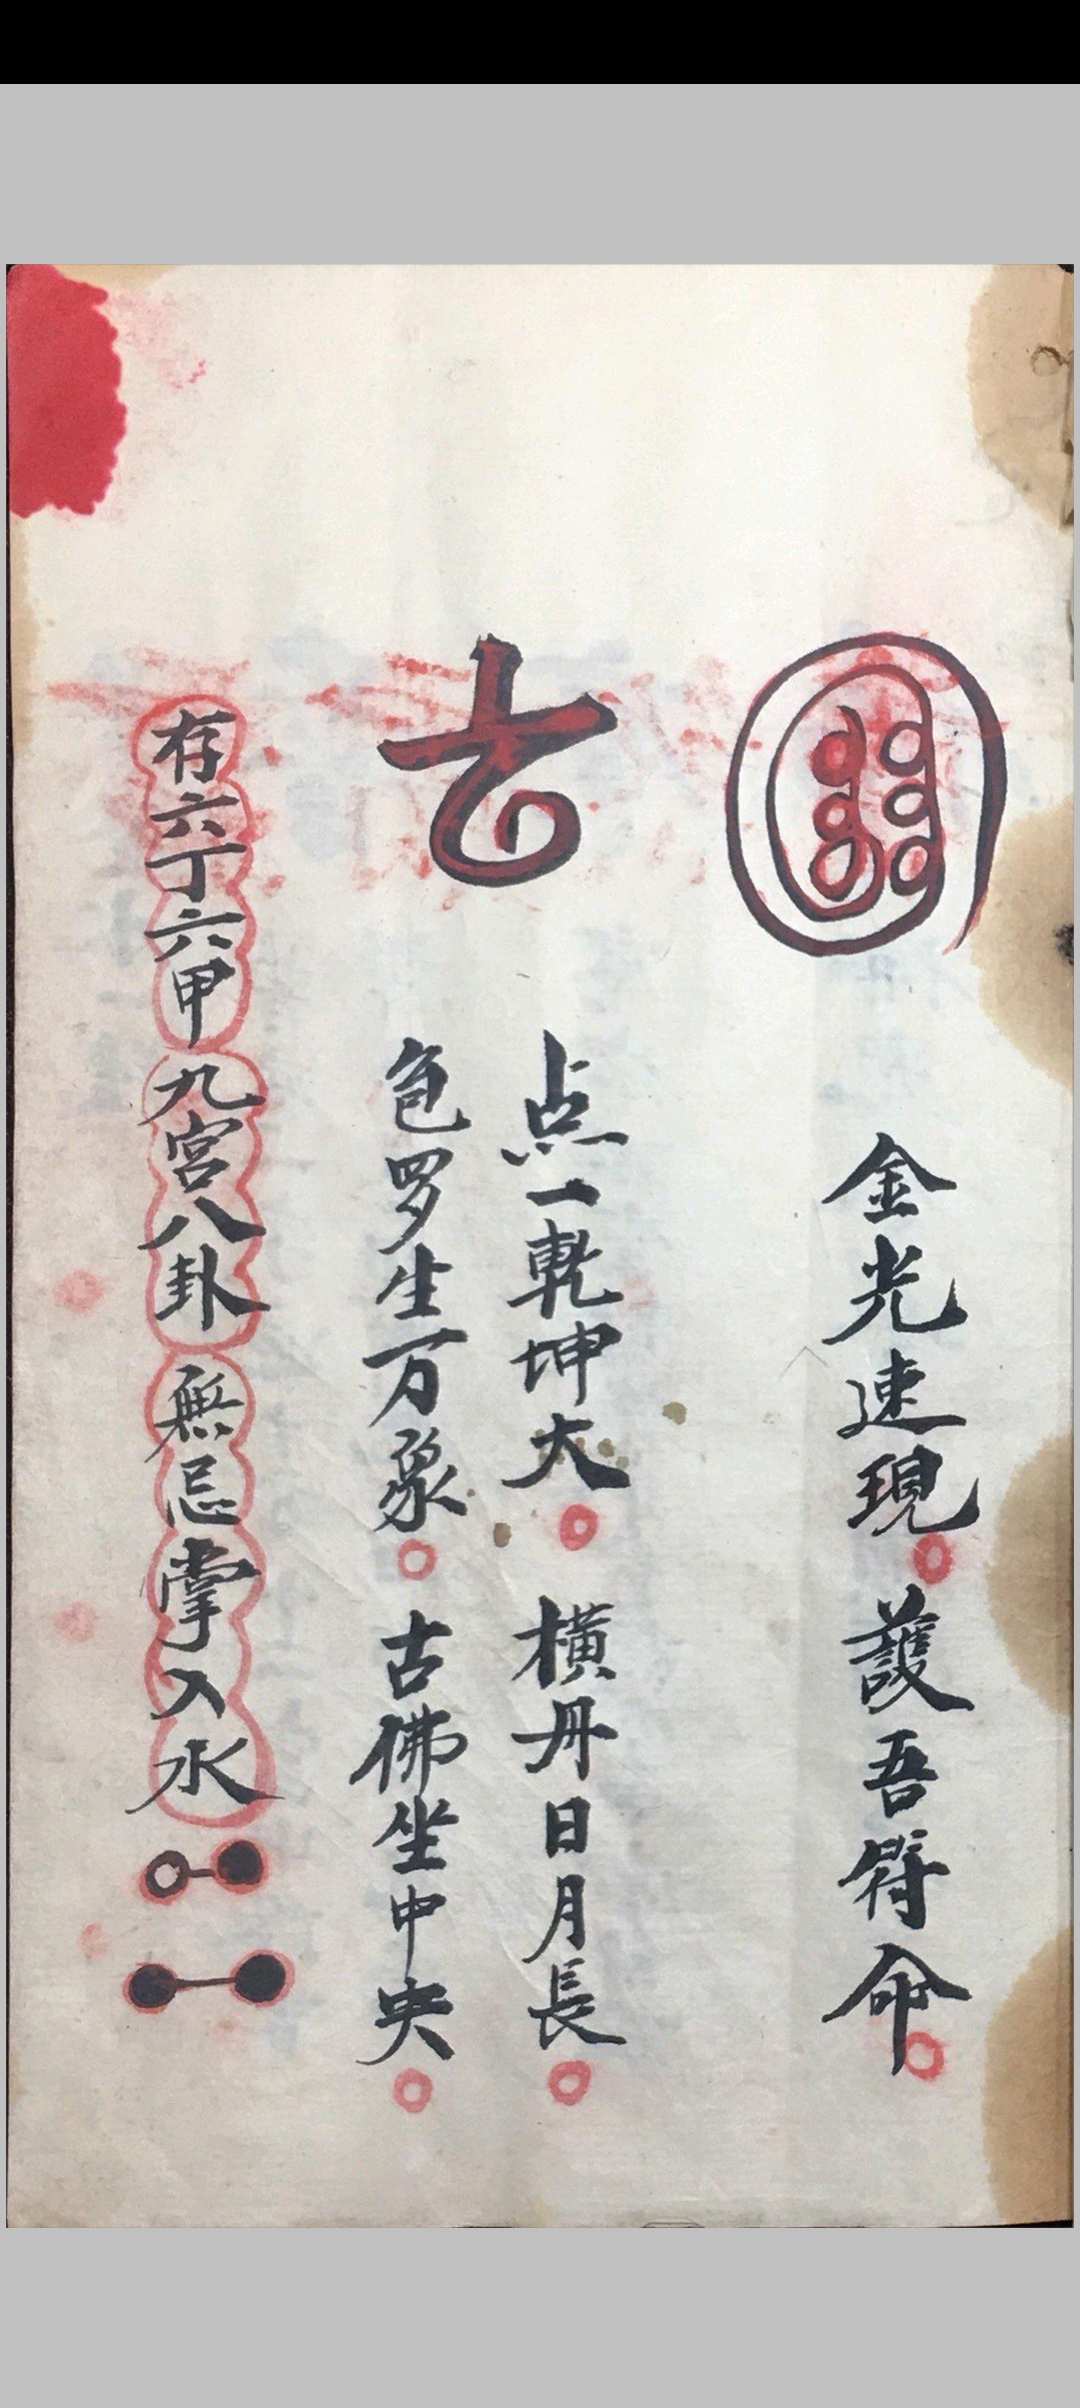 金光速現 護吾符命
点一乾坤大 橫丹日月長
包罗生万象 古佛坐中央
存六丁六甲九宮八卦無忌掌入水